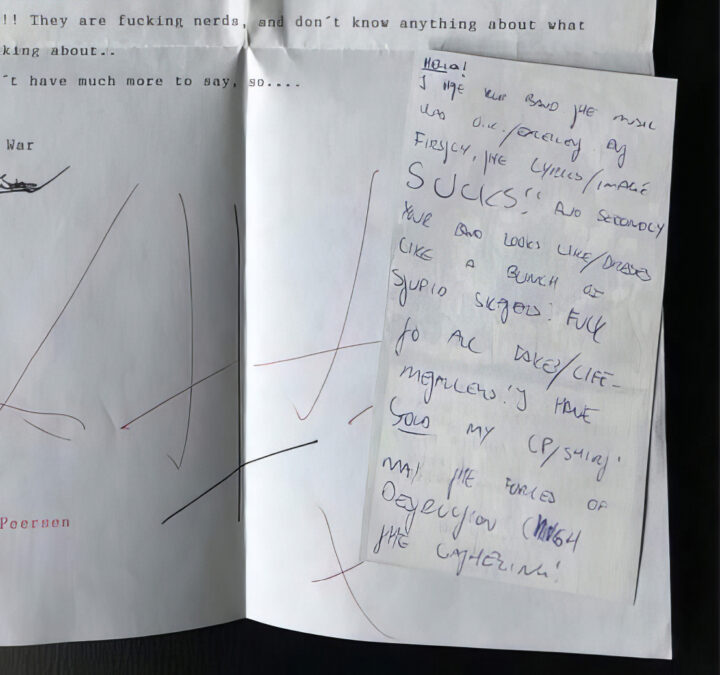 !! They are fucking nerds, and don´t know anything about what
king about..
´t have much more to say, so....
War
Poersen
Hello!
I your band the music
was o.k./
Firstly, the lyrics/image
SUCKS!! And secondly
your band looks like/dresses
like a bunch of
stupid skaters! Fuck
to all /life-
metallers! I have
sold my /shirt!
may the forces of
Destruction
the gathering!